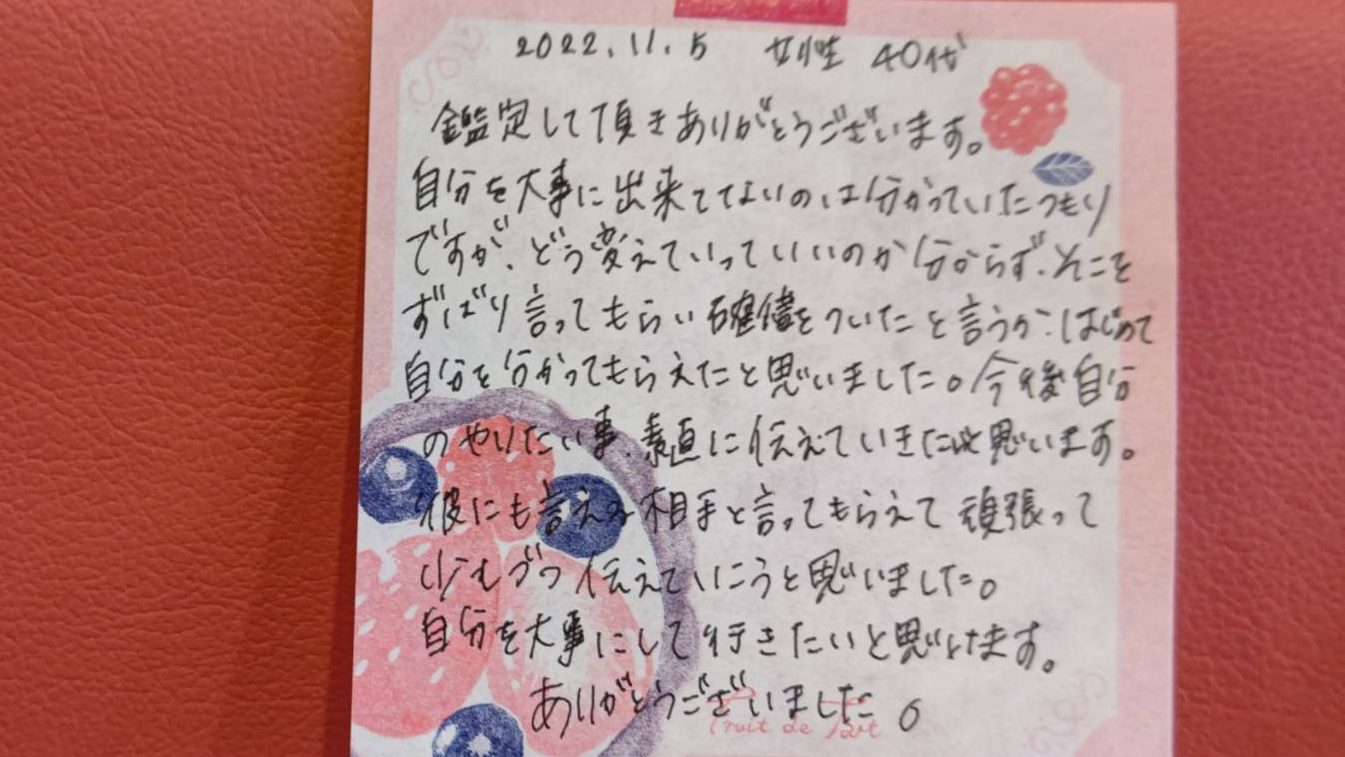 2022.11.5 女性 40代
鑑定して頂きありがとうございます。
自分を大事に出来てないのは分かっていたつもり
ですが、どう変えていっていいのか分からず、そこを
ずばり言ってもらい確信をついたと言うか、はじめて
自分を分かってもらえたと思いました。今後自分
のやりたい事、素直に伝えていきたいと思います。
彼にも言える相手と言ってもらえて頑張って
少しづつ伝えていこうと思いました。
自分を大事にして行きたいと思います。
ありがとうございました。
Fruit de Tart